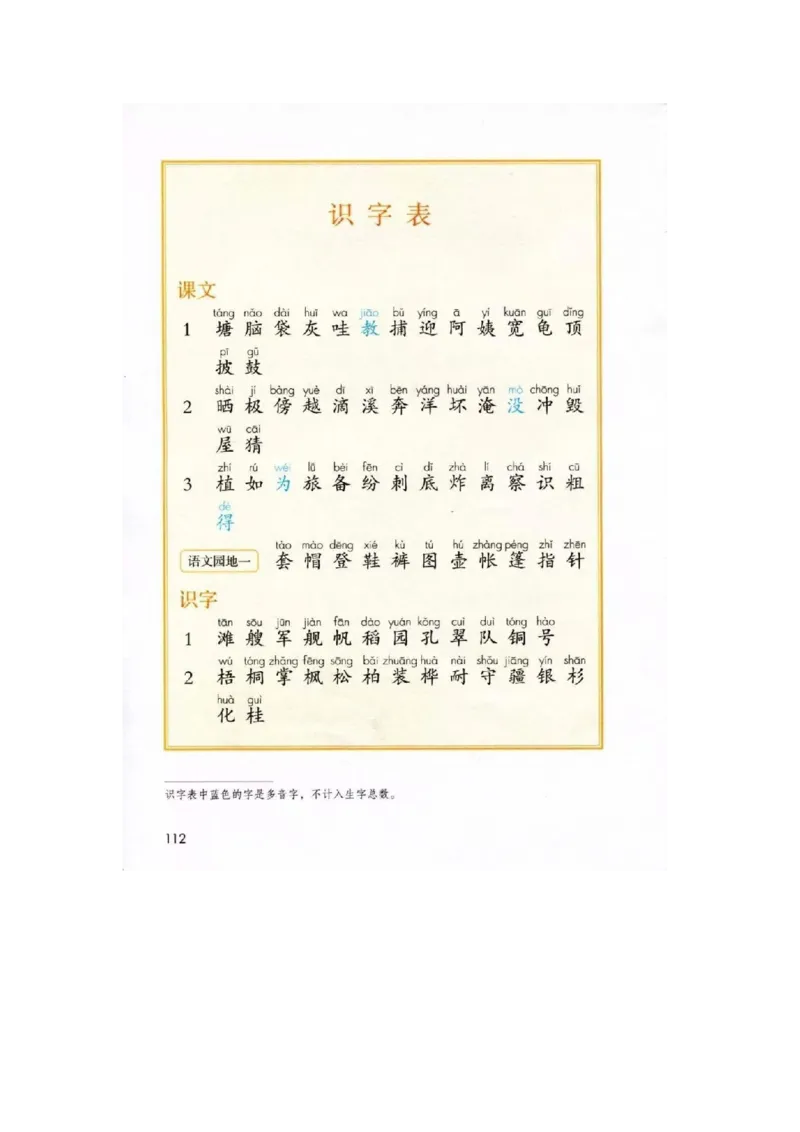 识字表
课文
táng nǎo dài huī wa jiāo bǔ yíng ā yí kuān guī dǐng
1 塘 脑 袋 灰 哇 教 捕 迎 阿 姨 宽 龟 顶
pī gǔ
披 鼓
shài jí bàng yuè dī xī bēn yáng huài yān mò chōng huǐ
2 晒 极 傍 越 滴 溪 奔 洋 坏 淹 没 冲 毁
wū cāi
屋 猜
zhí rú wéi lǚ bèi fēn cì dǐ zhà lí chá shí cū
3 植 如 为 旅 备 纷 刺 底 炸 离 察 识 粗
dé
得
tào mào dēng xié kù tú hú zhàng péng zhǐ zhēn
语文园地一 套 帽 登 鞋 裤 图 壶 帐 篷 指 针
识字
tān sōu jūn jiàn fān dào yuán kǒng cuì duì tóng hào
1 滩 艘 军 舰 帆 稻 园 孔 翠 队 铜 号
wú tóng zhǎng fēng sōng bǎi zhuāng huà nài shǒu jiāng yín shān
2 梧 桐 掌 枫 松 柏 装 桦 耐 守 疆 银 杉
huà guì
化 桂
识字表中蓝色的字是多音字，不计入生字总数。
112